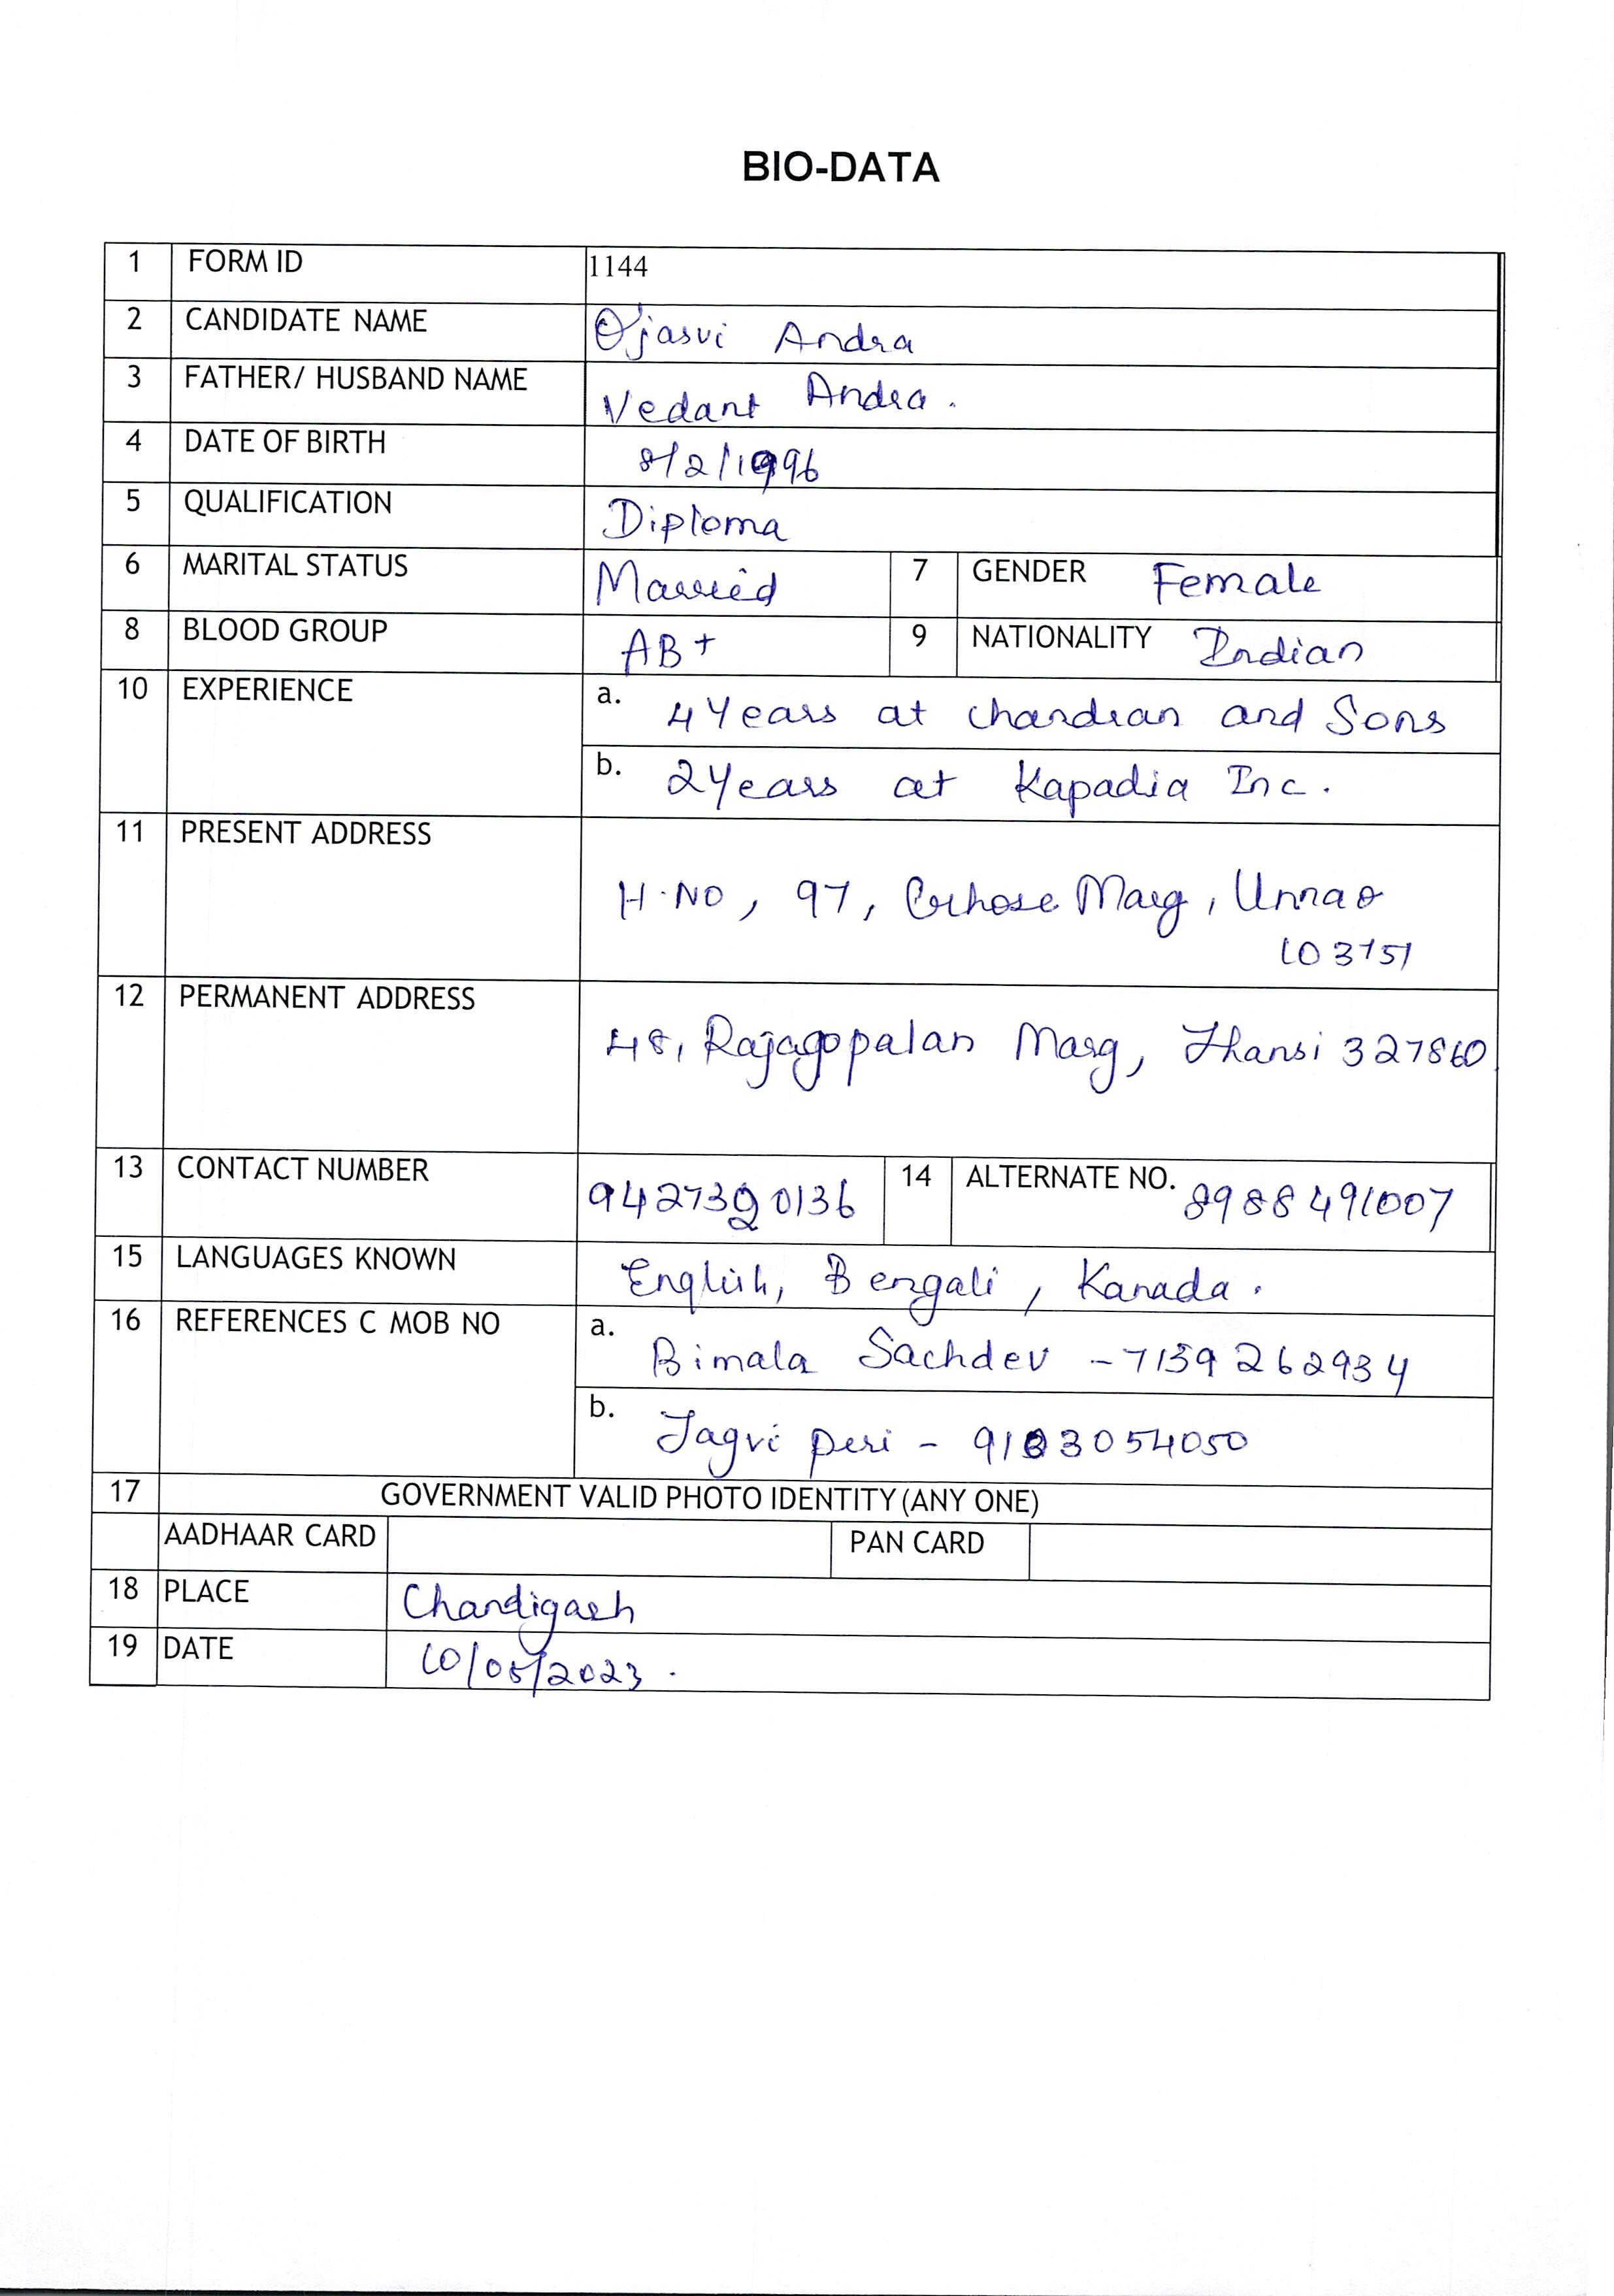 BIO-DATA
1 FORM ID 1144
2 CANDIDATE NAME Ojasvi Andra
3 FATHER/ HUSBAND NAME Vedant Andra.
4 DATE OF BIRTH 8/2/1996
5 QUALIFICATION Diploma
6 MARITAL STATUS Married 7 GENDER Female
8 BLOOD GROUP AB+ 9 NATIONALITY Indian
10 EXPERIENCE a. 4 Years at Chandran and Sons
b. 2 Years at Kapadia Inc.
11 PRESENT ADDRESS
H.NO, 97, Ghose Marg, Unnao
103751
12 PERMANENT ADDRESS
48, Rajagopalan Marg, Jhansi 327860
13 CONTACT NUMBER 14 ALTERNATE NO. 8988491007
15 LANGUAGES KNOWN English, Bengali, Kanada.
16 REFERENCES C MOB NO a. Bimala Sachdev - 7159262934
b. Jagvi Peri - 9183054050
17 GOVERNMENT VALID PHOTO IDENTITY (ANY ONE)
AADHAAR CARD PAN CARD
18 PLACE Chandigarh
19 DATE 10/05/2023.